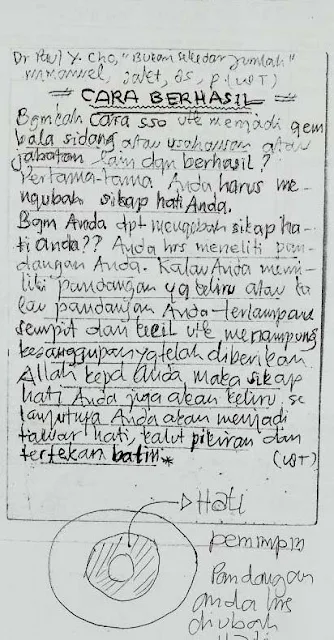 Dr Paul Y. Cho, "Bukan sekedar Jumlah"
Immanuel, Jakt, 85, p. (UST)
= CARA BERHASIL =
Bgmkah cara sso utk menjadi gem
bala sidang atau usahawan atau
jabatan lain dgn berhasil?
Pertama-tama Anda harus me-
ngubah sikap hati Anda.
Bgm Anda dpt mengubah sikap ha-
ti anda?? Anda hrs meneliti pan-
dangan Anda. Kalau Anda memi-
liki pandangan yg keliru atau ka
lau pandangan Anda terlampau
sempit dan kecil utk menampung
kesanggupan yg telah diberikan
Allah kepd Anda, maka sikap
hati Anda juga akan keliru, se
lanjutnya Anda akan menjadi
tawar hati, kalut pikiran dan
tertekan batin.*
(UST)
Hati
pemimpin
Pandangan
anda hrs
diubah